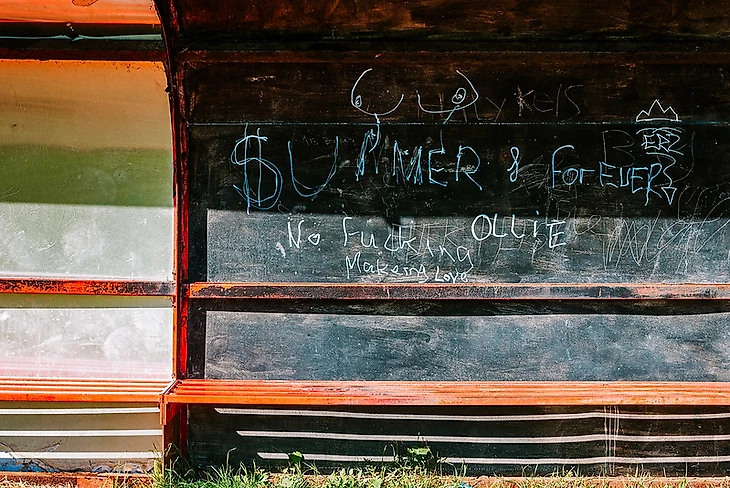 $UMMER & FOREVER
No Fucking OLLiE
Making Love